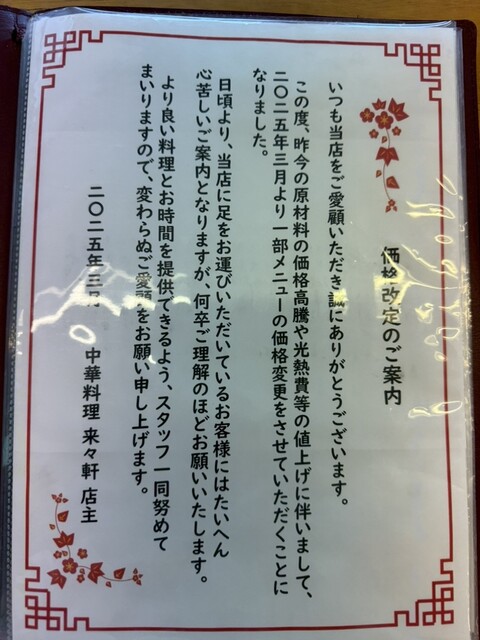 価格改定のご案内
いつも当店をご愛顧いただき誠にありがとうございます。
この度、昨今の原材料の価格高騰や光熱費等の値上げに伴いまして、
二〇二五年三月より一部メニューの価格変更をさせていただくことに
なりました。
日頃より、当店に足をお運びいただいているお客様にはたいへん
心苦しいご案内となりますが、何卒ご理解のほどお願いいたします。
より良い料理とお時間を提供できるよう、スタッフ一同努めて
まいりますので、変わらぬご愛顧をお願い申し上げます。
二〇二五年三月 中華料理 来々軒 店主